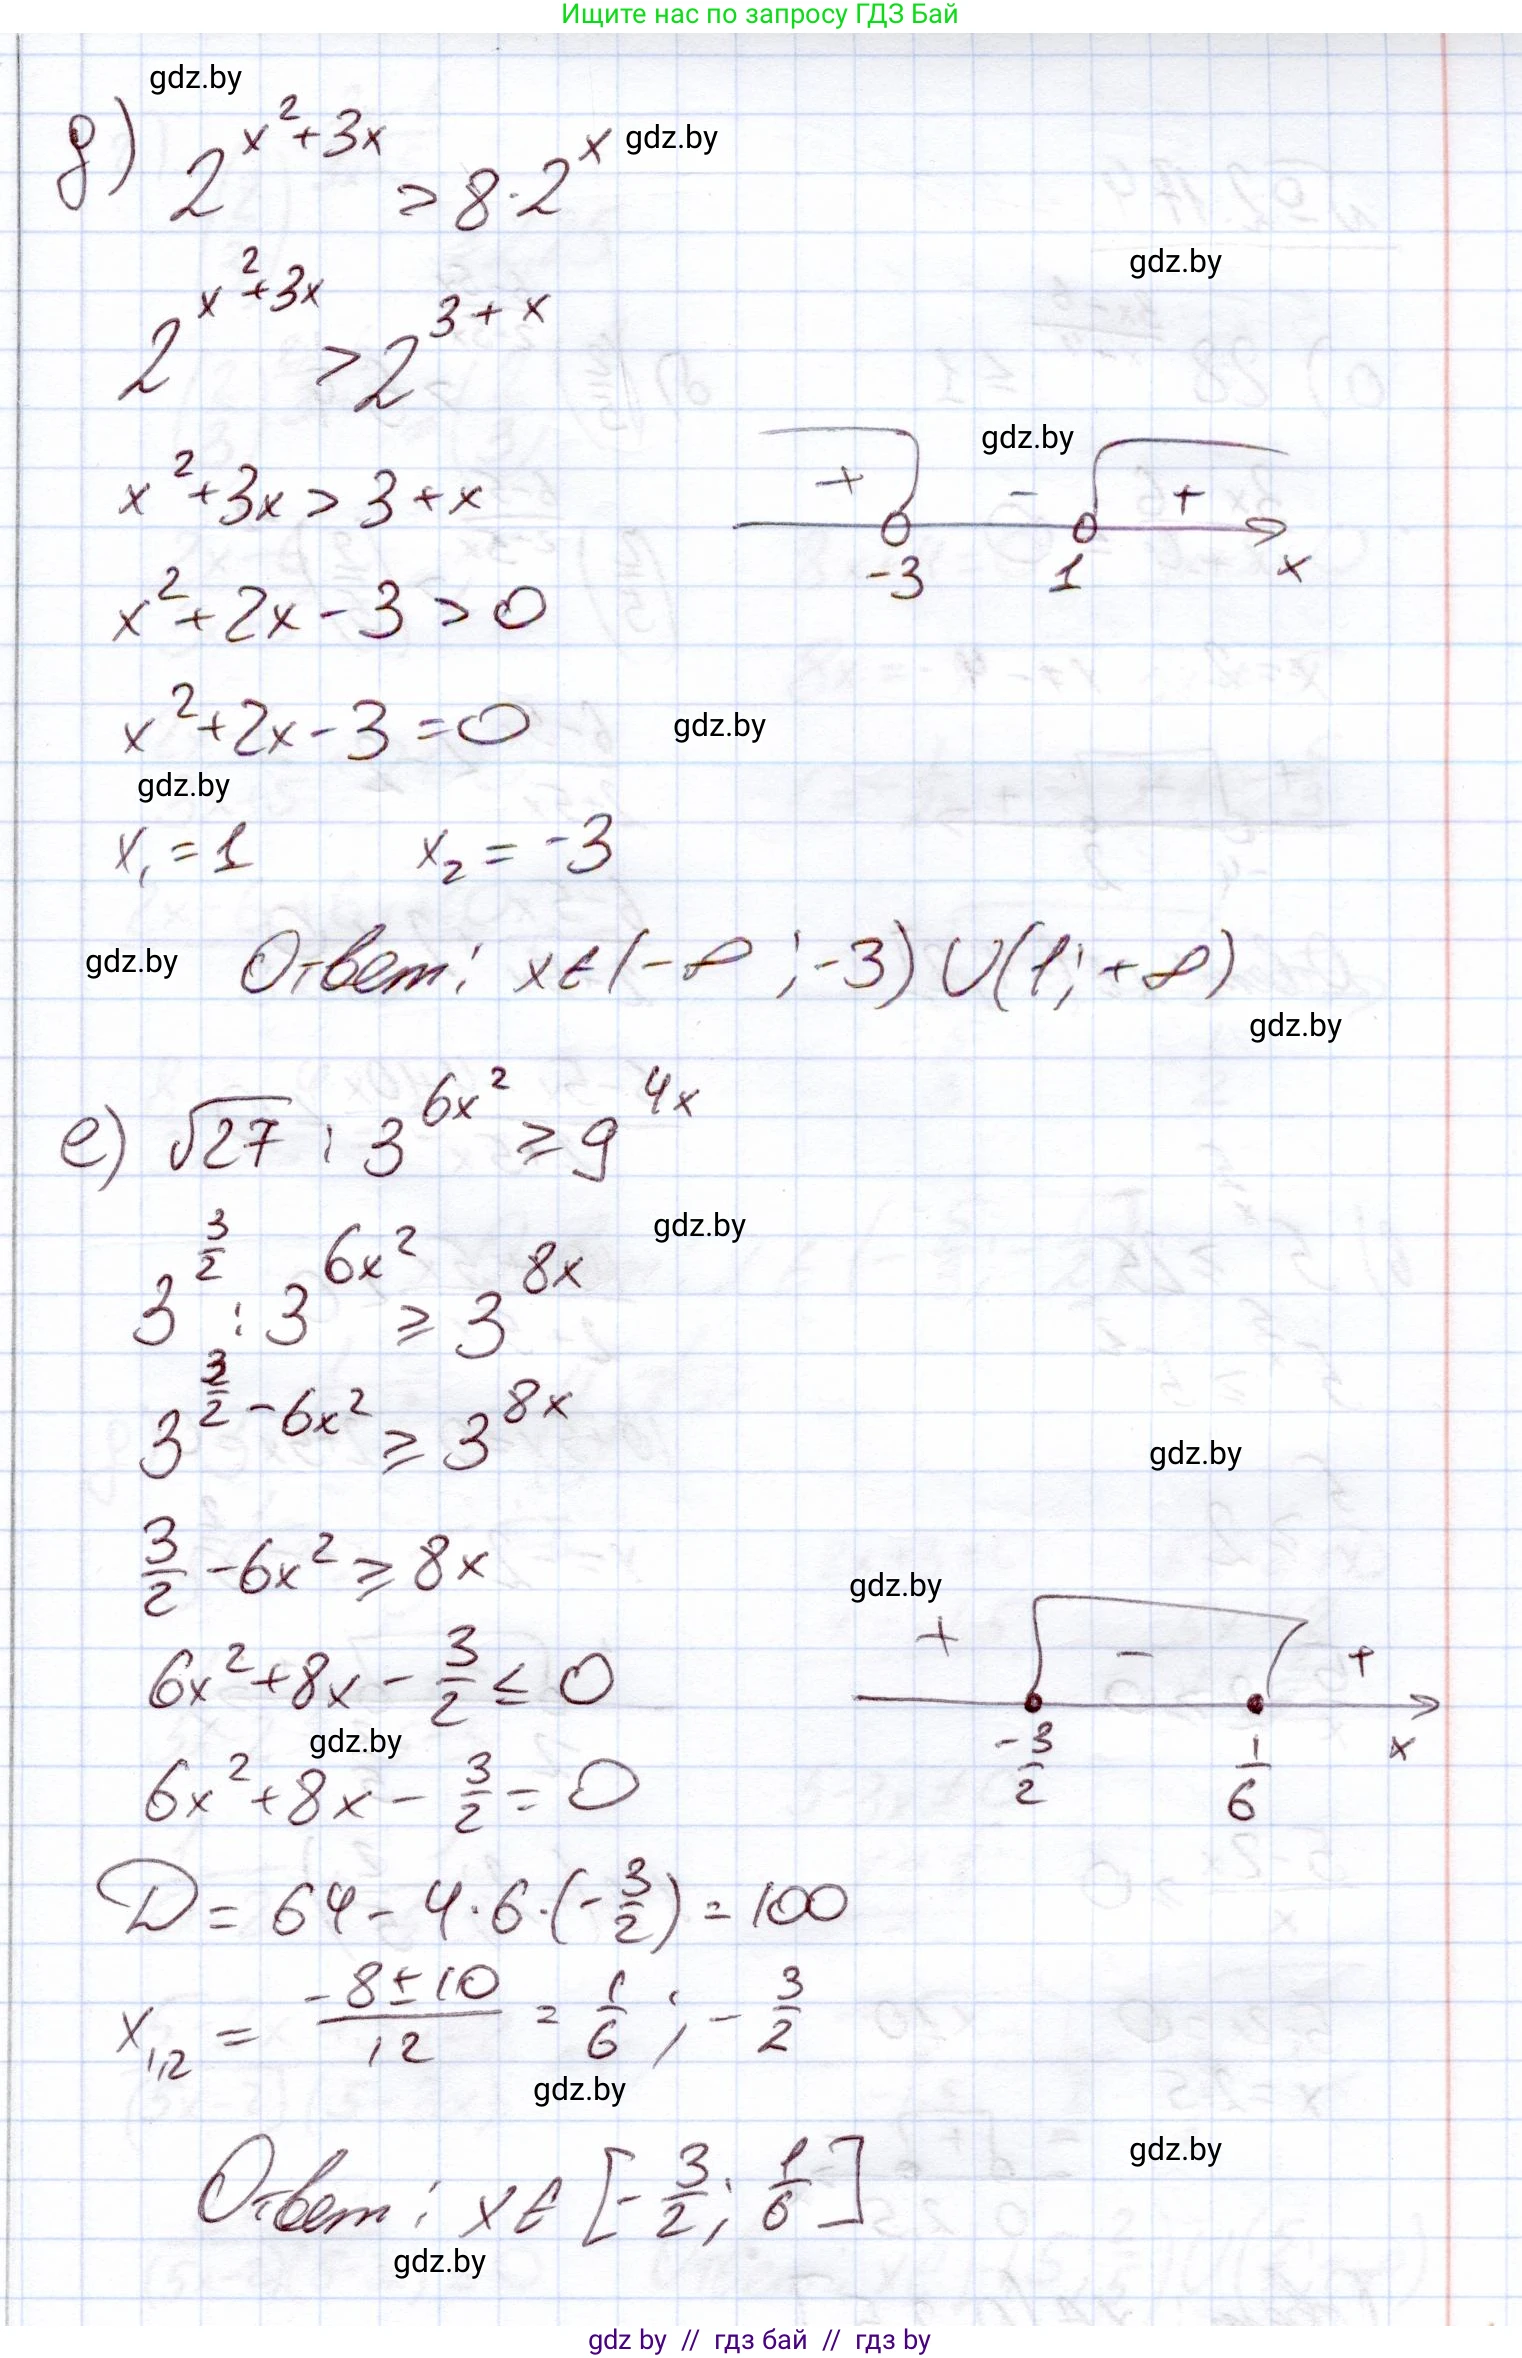 Ищите нас по запросу ГДЗ Бай
gdz.by
д) 2^(x²+3x) > 8·2^x gdz.by
gdz.by
2^(x²+3x) > 2^(3+x)
gdz.by
x²+3x > 3+x
+ - +
-3 1 x
x²+2x-3 > 0
x²+2x-3 = 0 gdz.by
gdz.by
x₁ = 1 x₂ = -3
gdz.by Ответ: x∈(-∞; -3)∪(1; +∞)
gdz.by
е) √27 : 3^(6x²) ≥ 9^(4x)
gdz.by
3^(3/2) : 3^(6x²) ≥ 3^(8x)
3^(3/2-6x²) ≥ 3^(8x)
gdz.by
3/2 - 6x² ≥ 8x
gdz.by
+ - +
6x²+8x-3/2 ≤ 0
gdz.by
-3/2 1/6 x
6x²+8x-3/2 = 0
D = 64-4·6·(-3/2) = 100
x₁,₂ = (-8±10)/12 = 1/6; -3/2
gdz.by
gdz.by
Ответ: x∈[-3/2; 1/6]
gdz.by
gdz by // гдз бай // гдз by